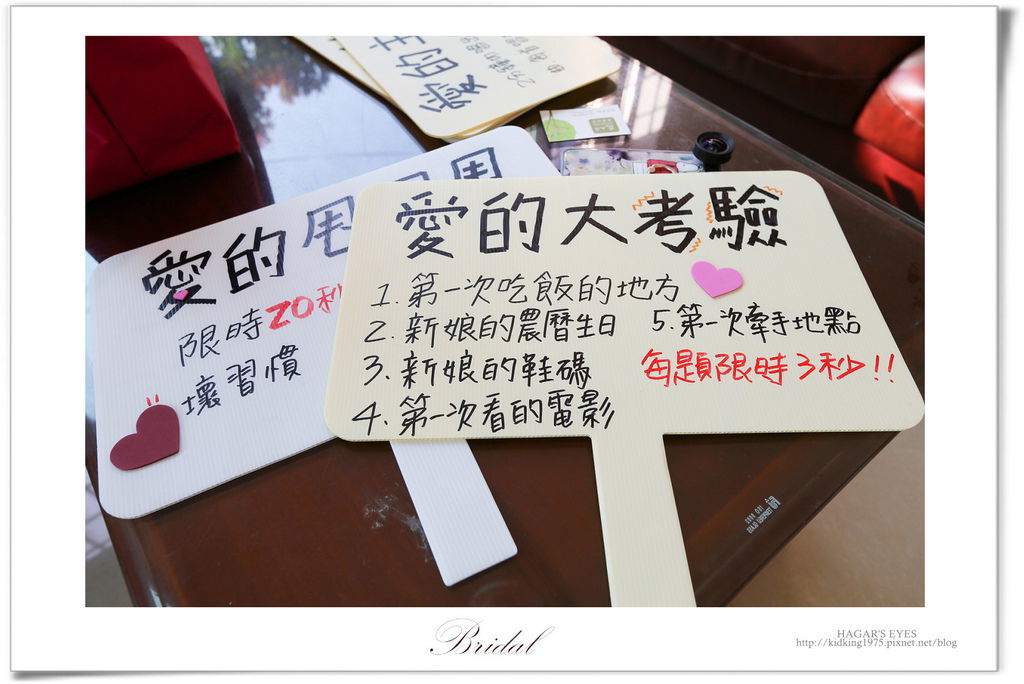 愛的大考驗
1. 第一次吃飯的地方
2. 新娘的農曆生日
3. 新娘的鞋碼
4. 第一次看的電影
5. 第一次牽手地點
每題限時3秒!!
愛的甩
限時20秒
壞習慣
愛的
Bridal
HAGAR'S EYES
http://kidking1975.pixnet.net/blog